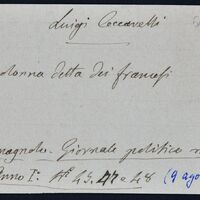 Luigi Coccavelli
olonna detta dei francesi
magnolo. Giornale politico
Anno I°. N° 43, 47 e 48 (9 ago